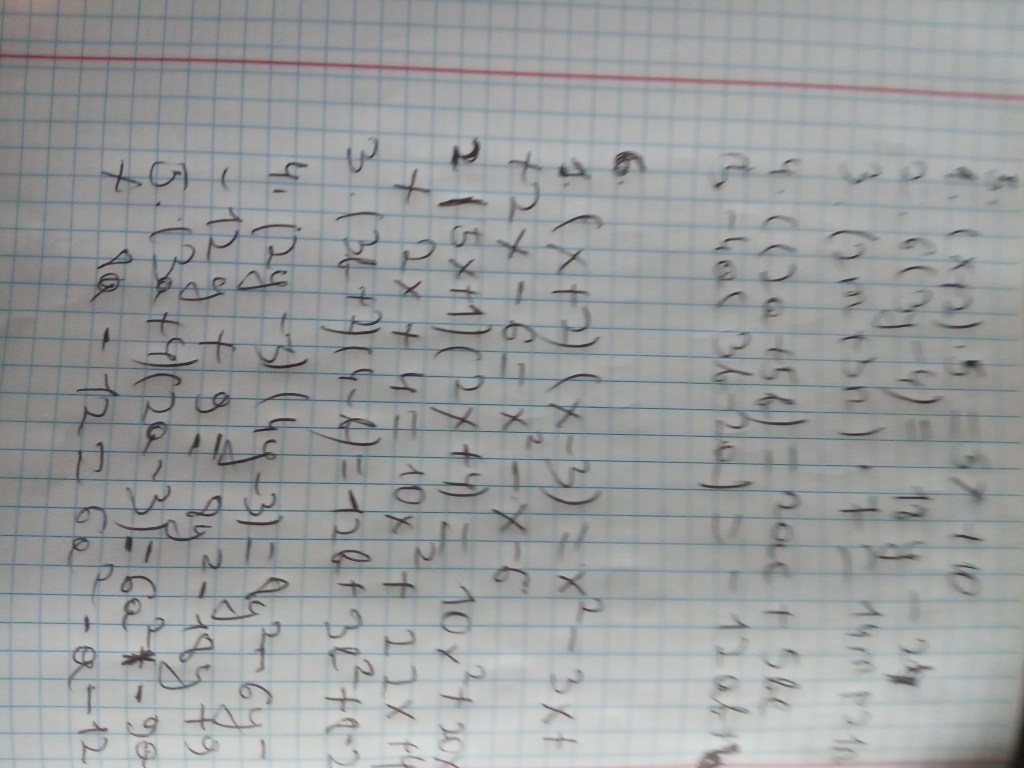 5.
1. (x+2)·5 = 5x+10
2. 6(2y-4) = 12y - 24
3. (2m+3n)·7 = 14m+21n
4. c(2a+5b) = 2ac + 5bc
5. -4a( 3b-2a) = -12ab+
6.
1. (x+2)(x-3) = x²-3x+
+2x-6 = x²-x-6
2 (5x+1)(2x+4) = 10x²+20x
+ 2x+4 = 10x²+22x+4
3. (3b+2)(4-b) = 12b+3b²+8-2
4. (2y-3)(4y-3) = 8y²-6y-
-12y+9 = 8y²-18y+9
5. (3a+4)(2a-3) = 6a²-9a
+ 8a-12 = 6a²-a-12